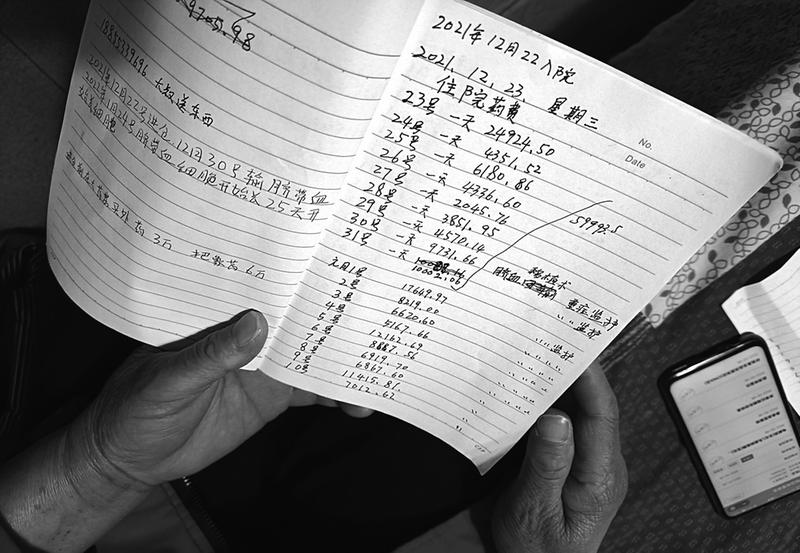 9705.98
大叔送东西
2021年12月22号进仓.12月30号输脐带血
2022年1月24号脐带血细胞开始长25天开
始长细胞
药 3万 药 6万
No.
Date
2021年12月22入院
2021.12.23. 星期三
住院药费
23号 一天 24924.50
24号 一天 4351.52
25号 一天 6180.86
26号 一天 4336.60
27号 一天 2045.76
28号 一天 3851.95
29号 一天 4570.14
30号 一天 9731.66
31号 一天 10002.06
脐血 移植术
元月1号 17649.97 重症监护
2号 8219.00 〃 〃 监护
3号 6620.60
4号 5167.66 〃 〃 监护
5号 12162.69 〃 〃 〃 〃
6号 8887.56 〃 〃 〃 〃
7号 6919.70 〃 〃 〃 〃
8号 6867.60 〃 〃 〃 〃
9号 11415.81. 〃
10号 7012.62 〃